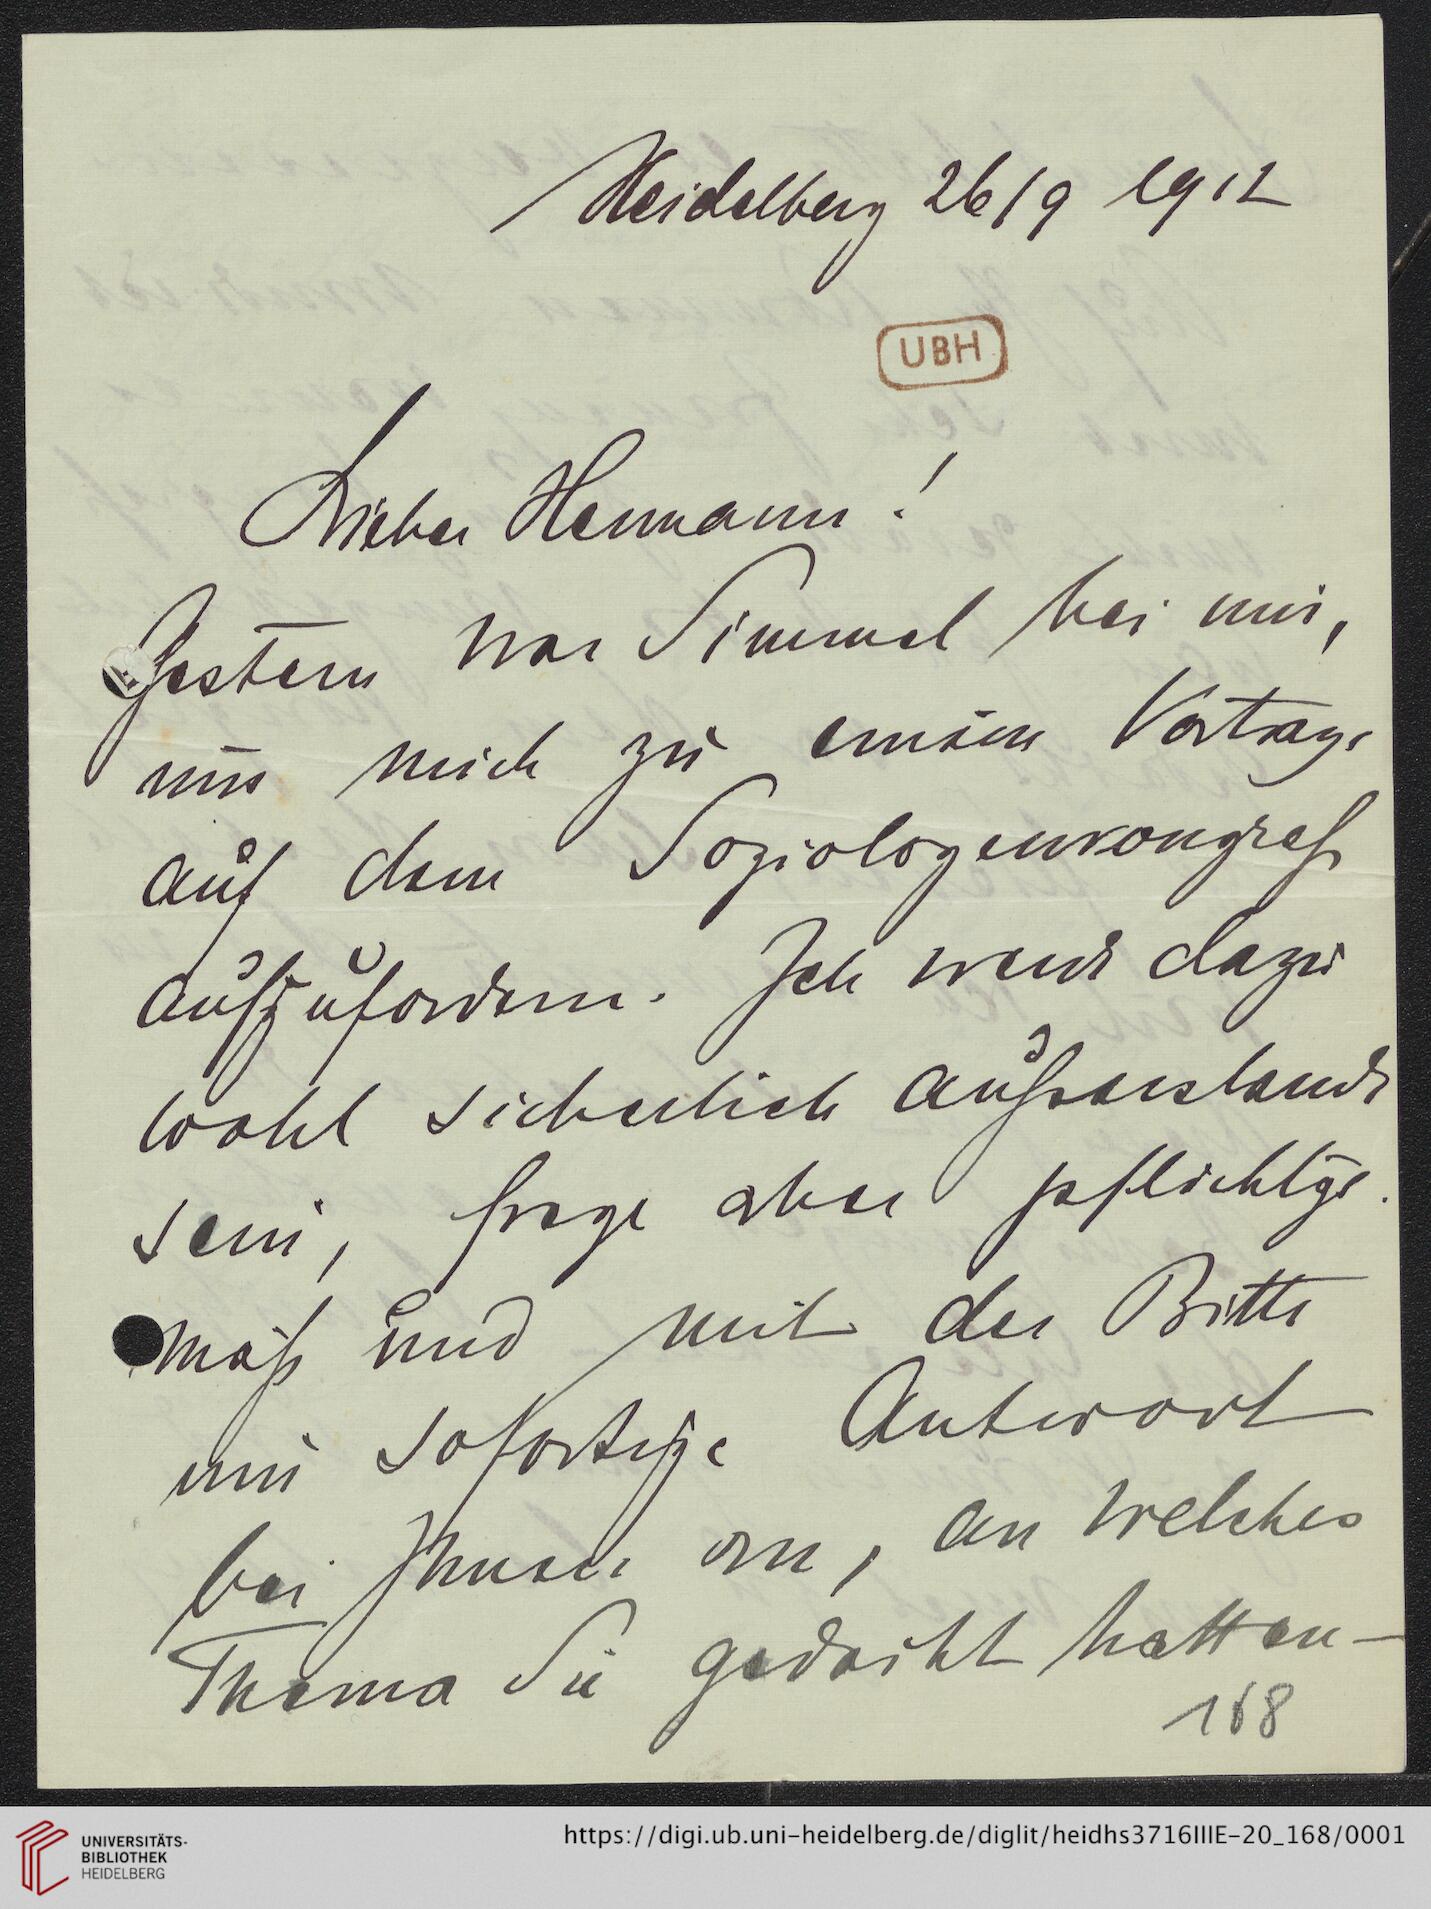 Heidelberg 26/9 1912
UBH
Lieber Hermann!
Gestern war Simmel bei mir,
um mich zu einem Vortrage
auf dem Soziologenkongreß
aufzufordern. Ich werde dazu
wohl sicherlich außerstande
sein, frage aber pflichtge-
mäß und mit der Bitte
um sofortige Antwort
bei Ihnen an, an welches
Thema Sie gedacht hatten –
168
UNIVERSITÄTS-
BIBLIOTHEK
HEIDELBERG
https://digi.ub.uni-heidelberg.de/diglit/heidhs3716IIIE-20_168/0001